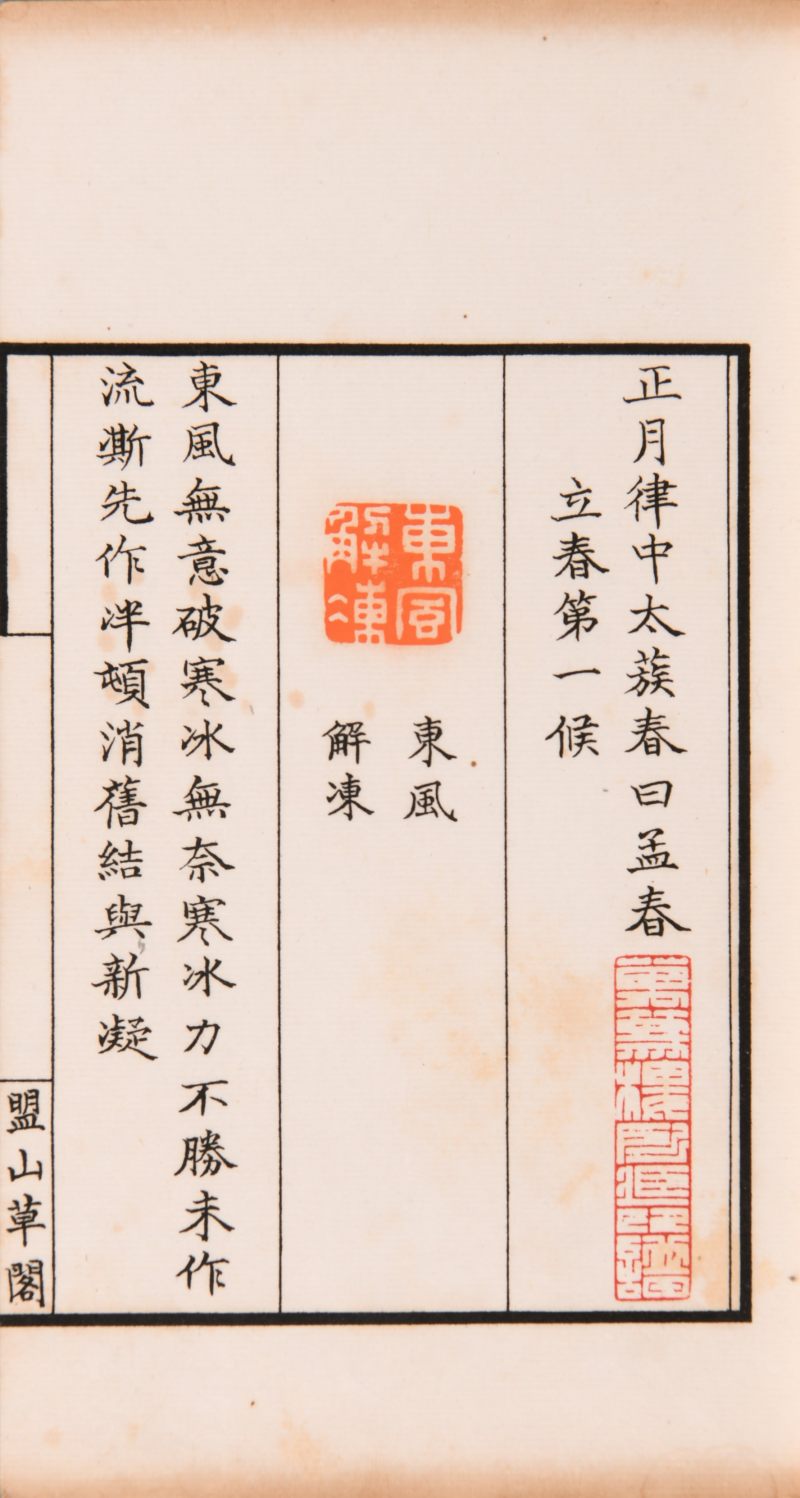 正月律中太蔟春曰孟春
立春第一候
東風
解凍
東風
解凍
東風無意破寒冰無奈寒冰力不勝未作
流澌先作泮頓消舊結與新凝
盟山草閣